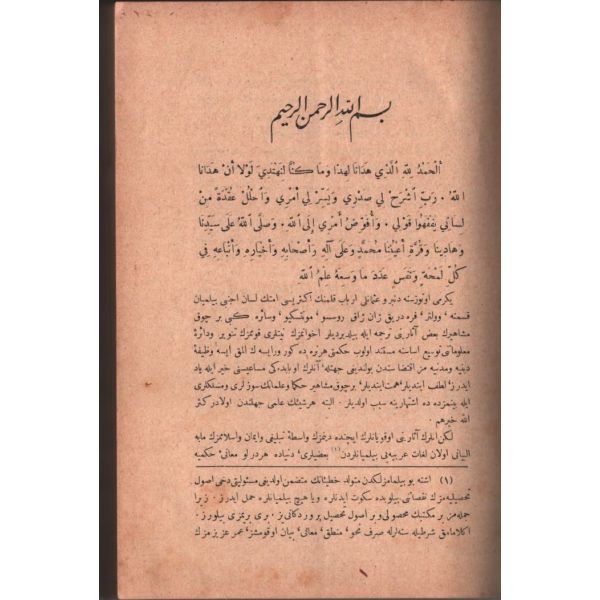 بسم الله الرحمن الرحيم
اَلْحَمْدُ لِلّٰهِ الَّذِي هَدَانَا لِهٰذَا وَمَا كُنَّا لِنَهْتَدِيَ لَوْلَا أَنْ هَدَانَا
اللهُ . رَبِّ اشْرَحْ لِي صَدْرِي وَيَسِّرْ لِي أَمْرِي وَاحْلُلْ عُقْدَةً مِنْ
لِسَانِي يَفْقَهُوا قَوْلِي . وَأُفَوِّضُ أَمْرِي إِلَى اللهِ . وَصَلَّى اللهُ عَلَى سَيِّدِنَا
وَهَادِينَا وَقُرَّةِ أَعْيُنِنَا مُحَمَّدٍ وَعَلَى آلِهِ وَأَصْحَابِهِ وَأَخْيَارِهِ وَأَتْبَاعِهِ فِي
كُلِّ لَمْحَةٍ وَنَفَسٍ عَدَدَ مَا وَسِعَهُ عِلْمُ اللهِ
يكرمى اوتوز سنه دنبرو عثمانلى ارباب قلمنك اكثريسى امتك لسان اجنبى بيلميان
قسمنه ، وولتر ، فره دريق ژان ژاق روسسو ، مونتسكيو ، وسائره كبى بر چوق
مشاهيرك بعض آثارينى ترجمه ايله بيلديرديلر اخوانمزك تنوير ودائرهٔ
معلوماتنى توسيع اساسنه مستند اولوب حكمتى هر نره ده كورورايسه ك المق ايسه وظيفهٔ
دينيه ومدنيه مز اقتضاسندن بولنديغى جهتله ، آنلرك اوبابده كى مساعيسنى خير ايله ياد
ايدرز ، لطف ايتديلر ، همت ايتديلر ، بر چوق مشاهير حكما وعلمانك سوزلرى ومسلكلرى
ايله بيننمزده ده اشتهارينه سبب اولديلر . البته هر شيئك علمى جهلندن اولادر كثر
الله خيرهم
لكن آنلرك آثارينى اوقويانلرك ايچنده دينمزك واسطهٔ تبليغى وايمان واسلامزك مابه
البيانى اولان لغات عربيه يى بيلميانلردن (١) بعضيلرى ، دنياده هر درلو معانئ حكميه
(١) اشته بو بيلمامزلكدن متولد خطيئاتك متضمن اولديغى مسئوليتى دخى اصول
تحصيليه مزك نقصانى بيلوبده سكوت ايدنلره ويا هيچ بيلميانلره حمل ايدرز . زيرا
جمله مز بر مكتبك محصولى و بر اصول تحصيل پروردكانى يز . برى برمزى بيلورز .
اكلامامق شرطيله سنه لرله صرف نحو ، منطق ، معانى ، بيان اوقومشز ، عمر عزيزمزك